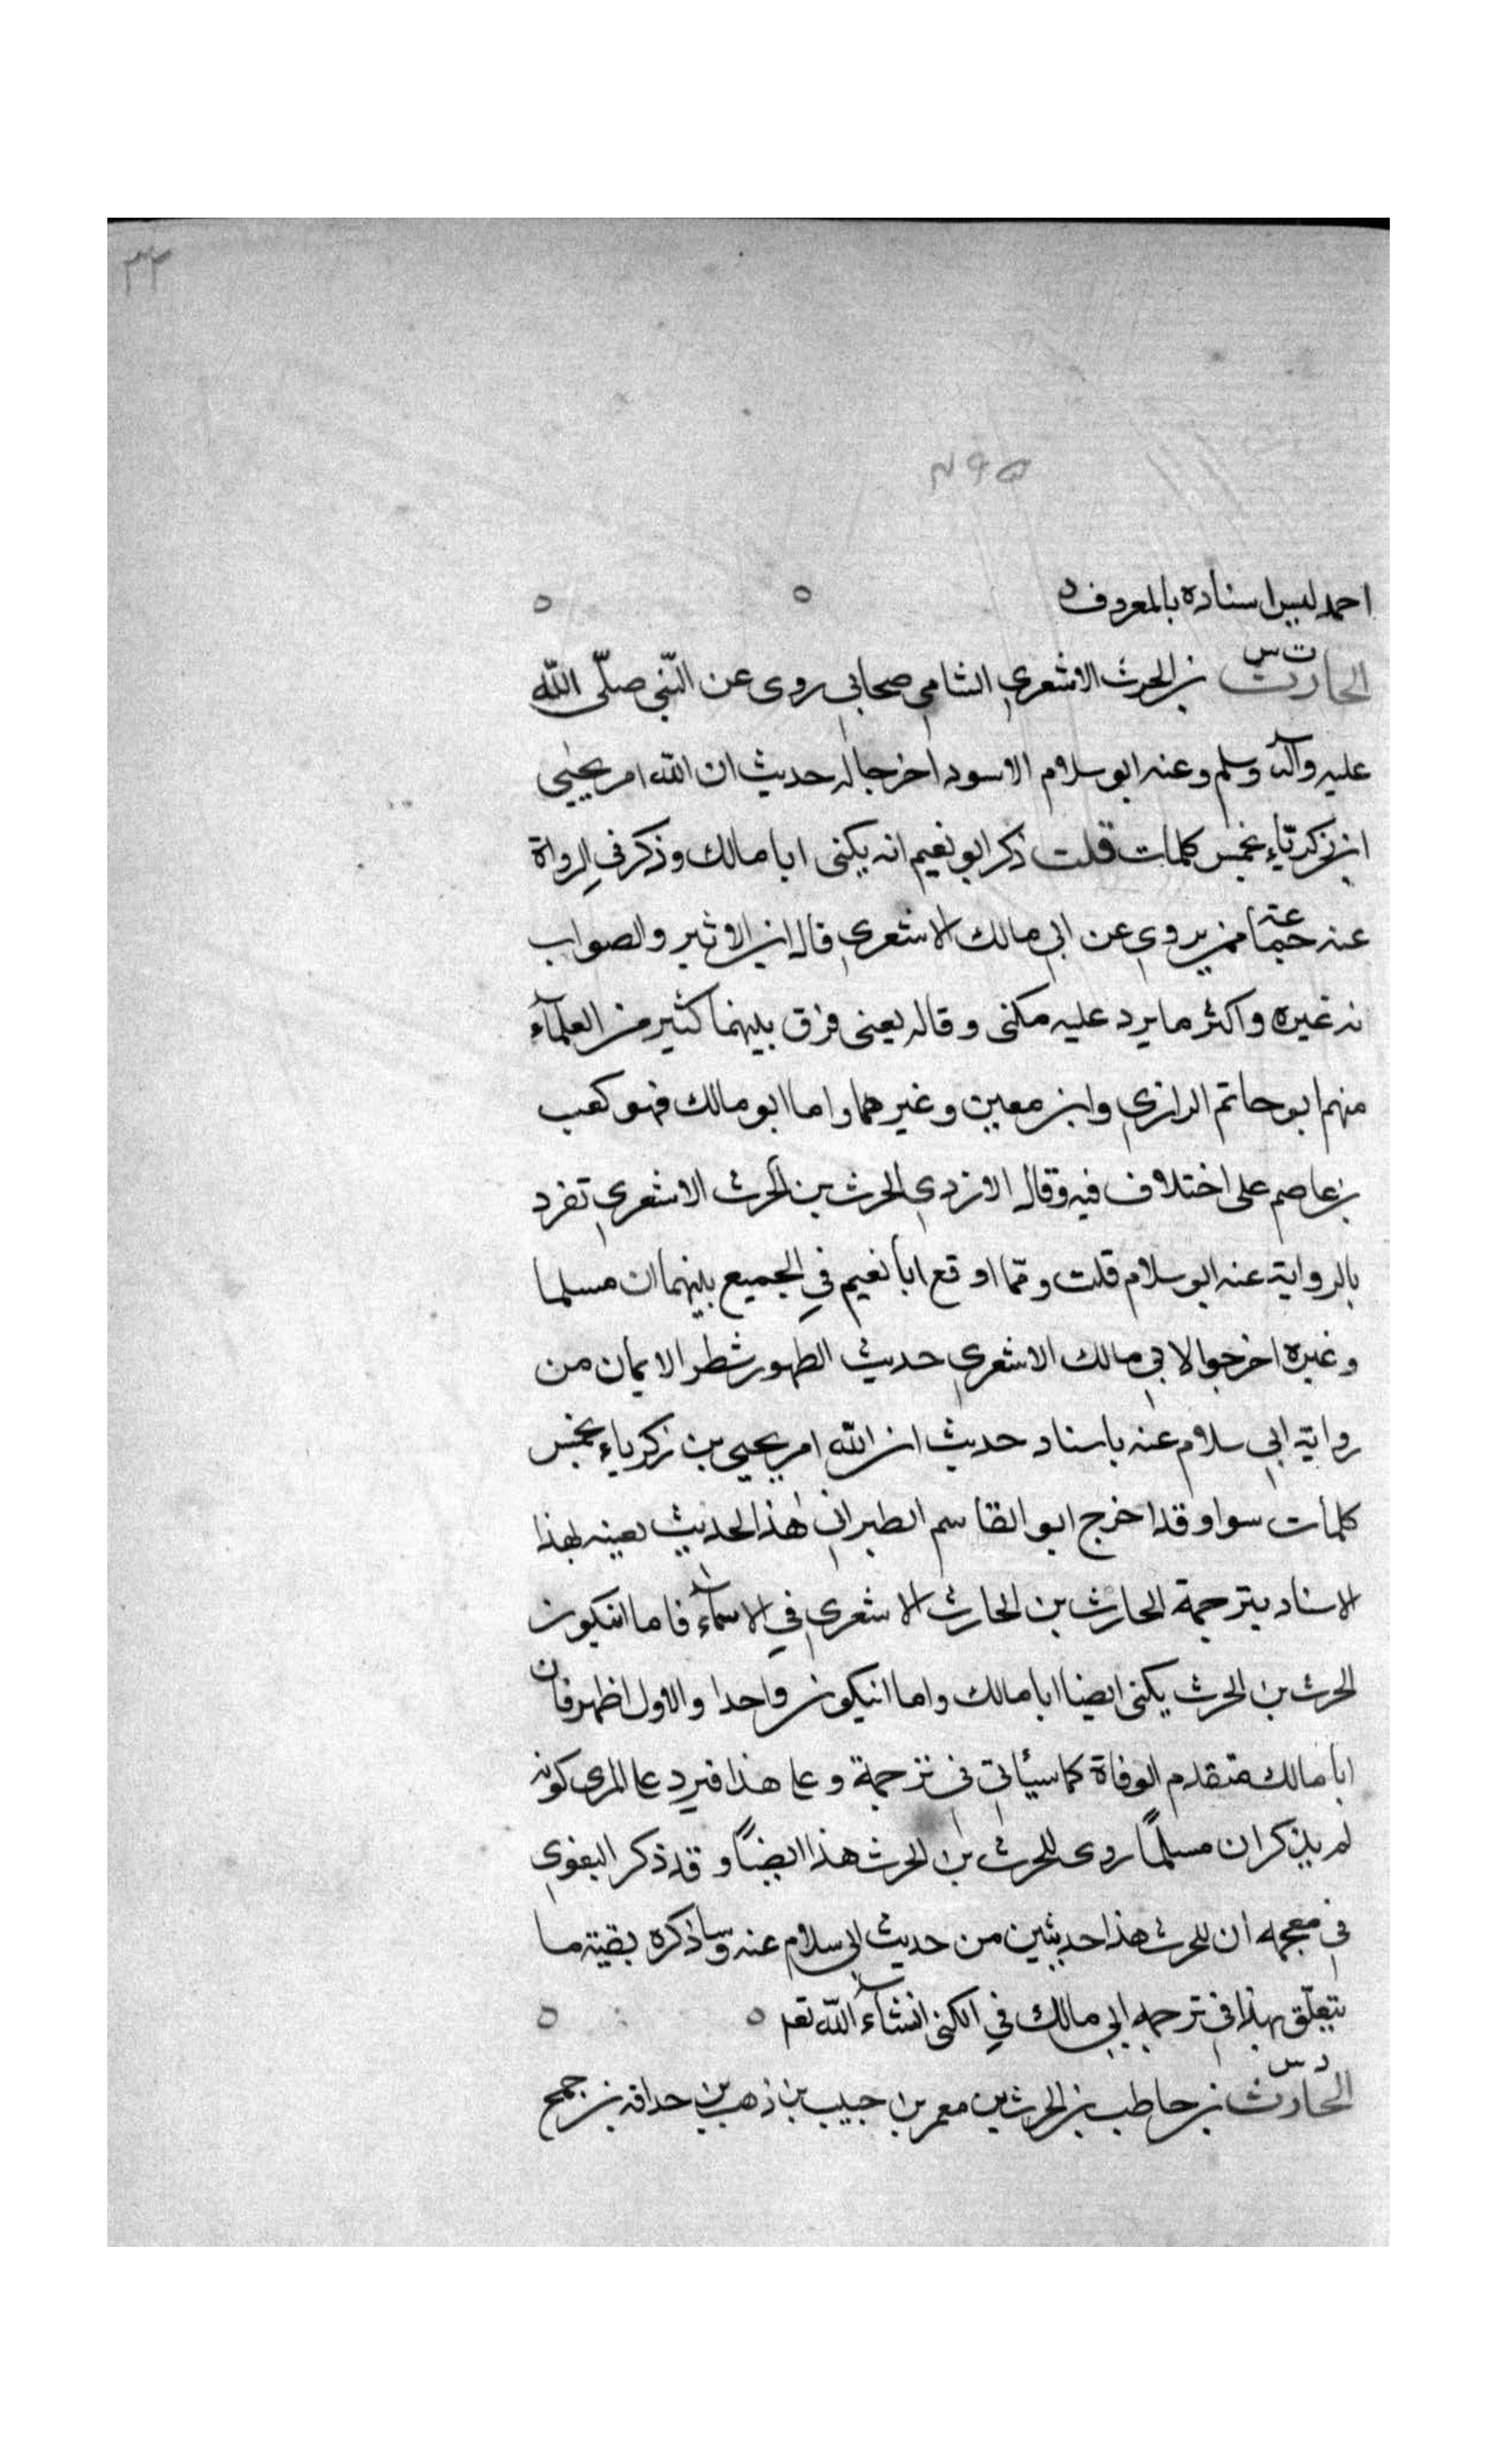 ٣٢
٢٩٥
احمد ليس اسناده بالمعروف ه ٥ ٥
ت س
الحارث بن الحرث الاشعري الشامي صحابي روى عن النّبي صلّى اللّه
عليه وآله وسلم وعنه ابو سلام الاسود اخرجا له حديث ان اللّه امر يحيى
ابن زكريّاء بخمس كلمات قلت ذكر ابو نعيم انه يكنى ابا مالك وذكر في الرواة
عنه جماعة ممن يروي عن ابي مالك الاشعري قال ابن الاثير والصواب
نه غيره واكثر ما يرد عليه مكنى وقاله يعنى فرق بينهما كثير من العلمآء
منهم ابو حاتم الرازي وابن معين وغيرهما واما ابو مالك فهو كعب
بن عاصم على اختلاف فيه وقال الازدي الحرث بن الحرث الاشعري تفرد
بالرواية عنه ابو سلام قلت وممّا اوقع ابا نعيم في الجميع بينهما ان مسلما
وغيره اخرجوا لابي مالك الاشعري حديث الطهور شطر الايمان من
رواية ابي سلام عنه باسناد حديث ان اللّه امر يحيى بن زكرياء بخمس
كلمات سوا وقد اخرج ابو القاسم الطبراني هذا الحديث بعينه بهذا
الاسناد بترجمة الحارث بن الحارث الاشعري في الاسمآء فاما انيكون
الحرث بن الحرث يكنى ايضا ابا مالك واما انيكون واحدا والاول اظهر فان
ابا مالك متقدم الوفاة كما سيأتي في ترجمة وعلى هذا فيرد على المزى كونه
لم يذكر ان مسلمًا روى للحرث بن الحرث هذا ايضًا وقد ذكر البغوي
في معجمه ان للحرث هذا حديثين من حديث ابي سلام عنه وساذكره بقية ما
يتعلّق بهذا في ترجمه ابي مالك في الكنى انشآء اللّه تعه ٥ ٥
د س
الحارث بن حاطب بن الحرث بن معمر بن حبيب بن ذهب بن حداقه بن جمح